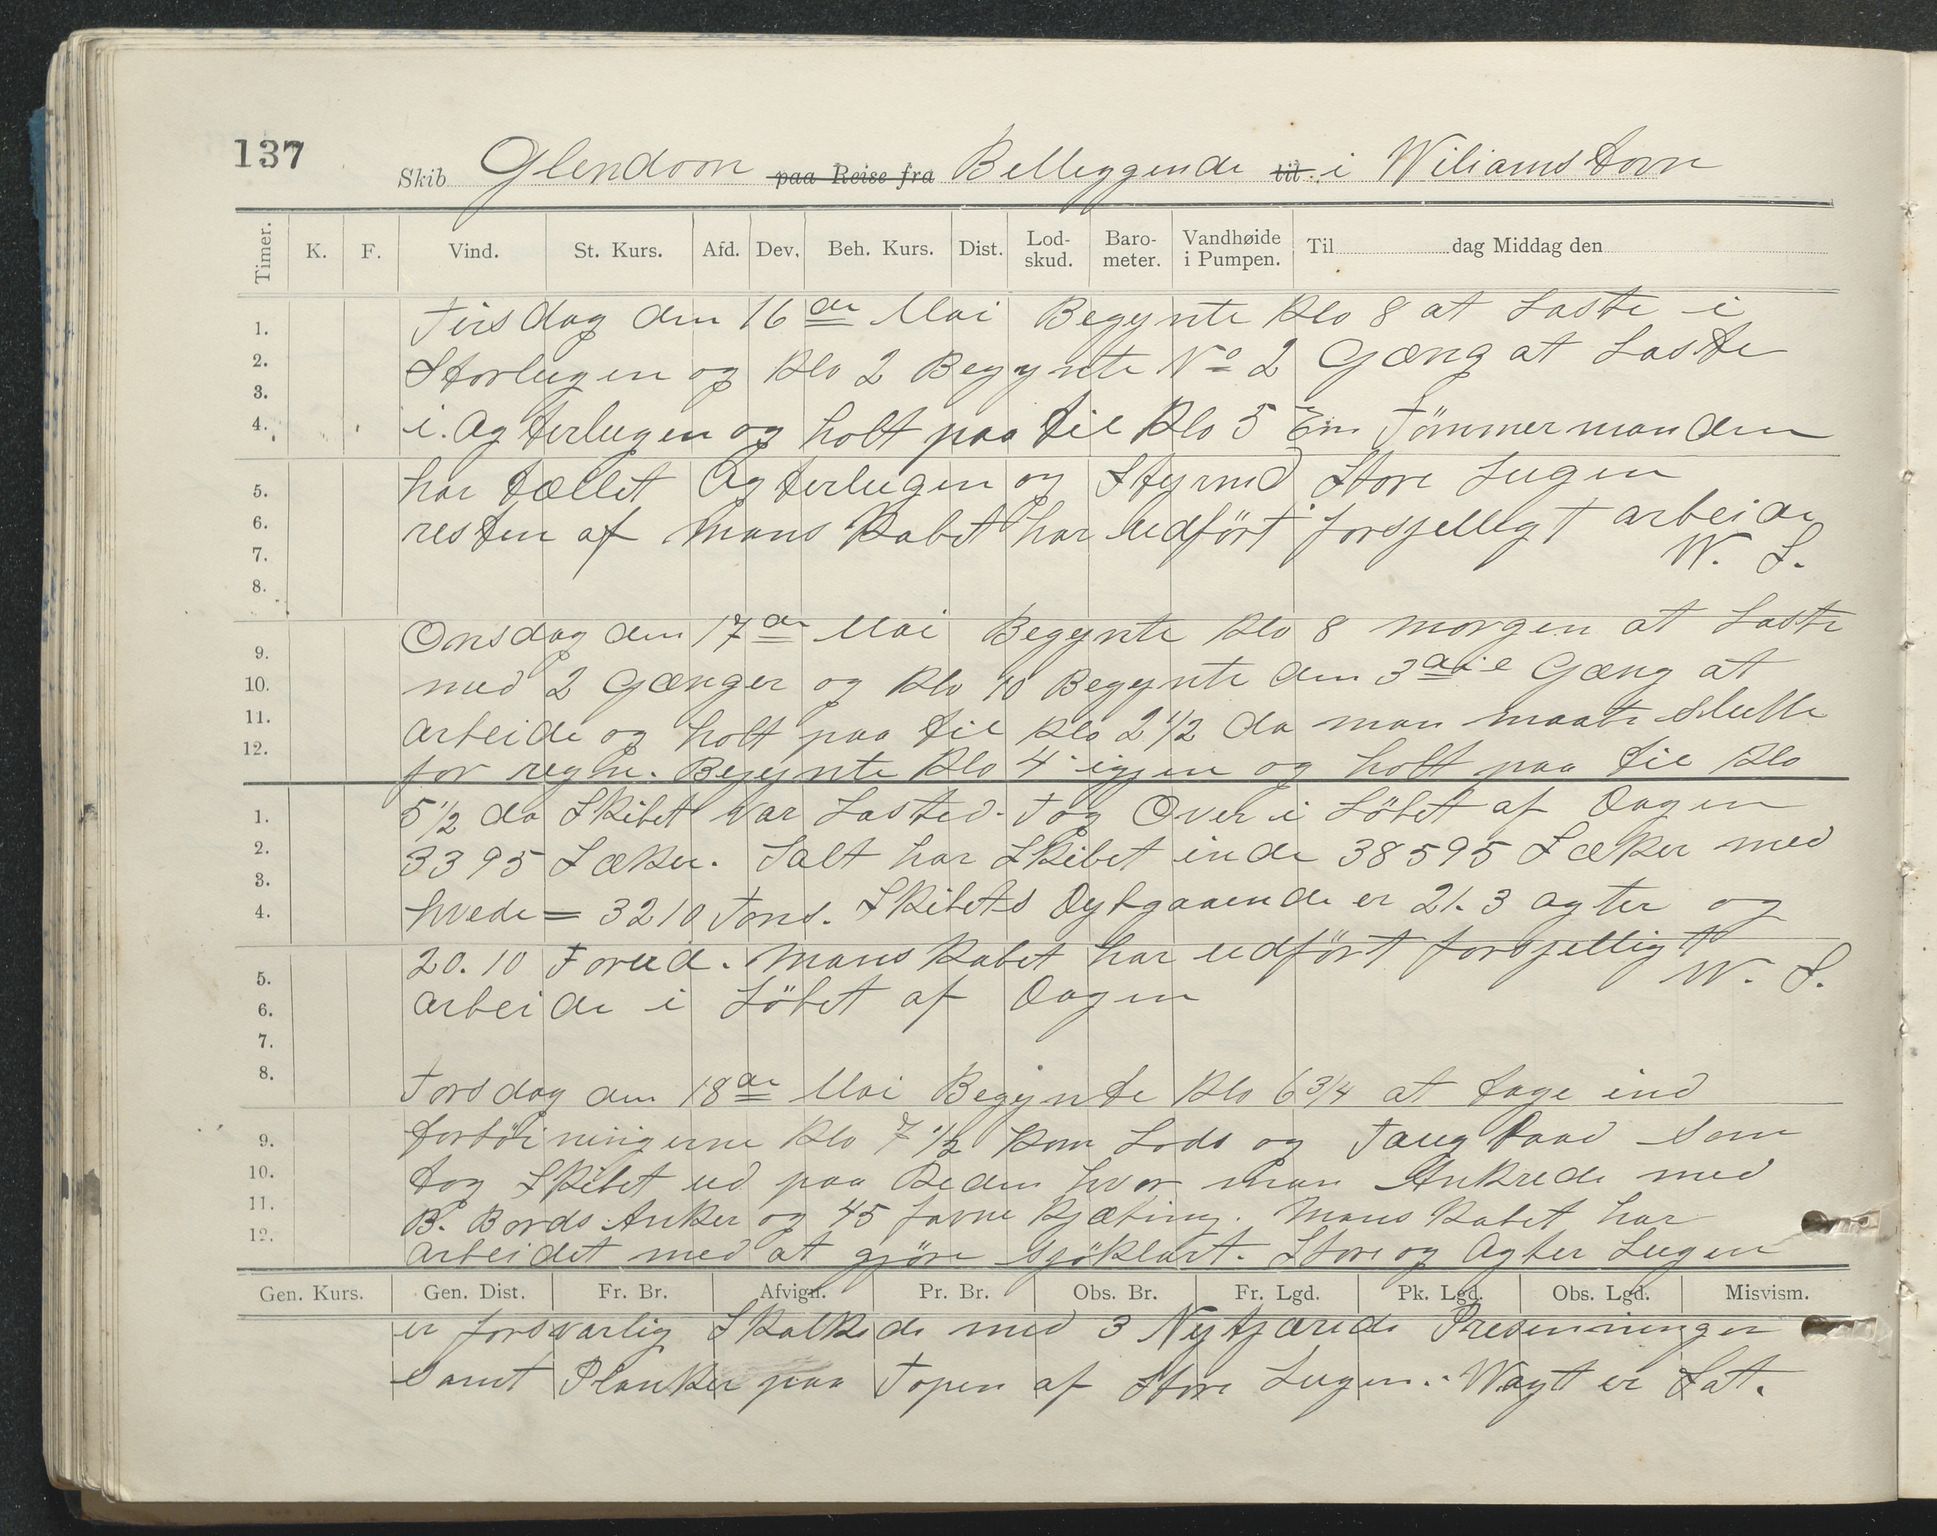 137
Skib Glendoon paa Reise fra Belleggende til i Wiliamstovn
Timer. K. F. Vind. St. Kurs. Afd. Dev. Beh. Kurs. Dist. Lod-skud. Baro-meter. Vandhøide i Pumpen. Til dag Middag den
1. Tirsdag den 16de Mai Begynte Klo 8 at Laste i
2. Storlugen og Klo 2 Begynte No 2 Gæng at Laste
3.
4. i Agterlugen og holt paa til Klo 5 Em Tömmermanden
5. har tællet Agterlugen og Styrmd Store Lugen
6. resten af Manskabet har udfört forsjelligt arbeide
7. W. S.
8.
9. Onsdag den 17de Mai Begynte Klo 8 morgen at Laste
10. med 2 Gænger og Klo 10 Begynte den 3die Gæng at
11. arbeide og holt paa til Klo 2 1/2 da man maate slutte
12. for regn. Begynte Klo 4 igjen og holt paa til Klo
1. 5 1/2 da Skibet var Lasted. Tog Over i Löbet af Dagen
2. 3395 Sæker. Ialt har Skibet inde 38595 Sæker med
3.
4. hvede = 3210 Tons. Skibets Dybgaaende er 21.3 agter og
5. 20.10 Forud. Manskabet har udfört forsjelligt
6. arbeide i Löbet af Dagen W. S.
7.
8. Torsdag den 18de Mai Begynte Klo 6 3/4 at tage ind
9. fortöiningerne Klo 7 1/2 kom Lods og Taugbaad som
10. tog Skibet ud paa Reden hvor man Ankrede med
11. B. Bords Anker og 45 favne Kjæting. Manskabet har
12. arbeidet med at gjöre sjöklart. Store og Agter Lugen
Gen. Kurs. Gen. Dist. Fr. Br. Afvign. Pr. Br. Obs. Br. Fr. Lgd. Pk. Lgd. Obs. Lgd. Misvism.
er forsvarlig Skalkede med 3 Nytjærede Presenninger
samt Planker paa Topen af Store Lugen. Wagt er Sat.